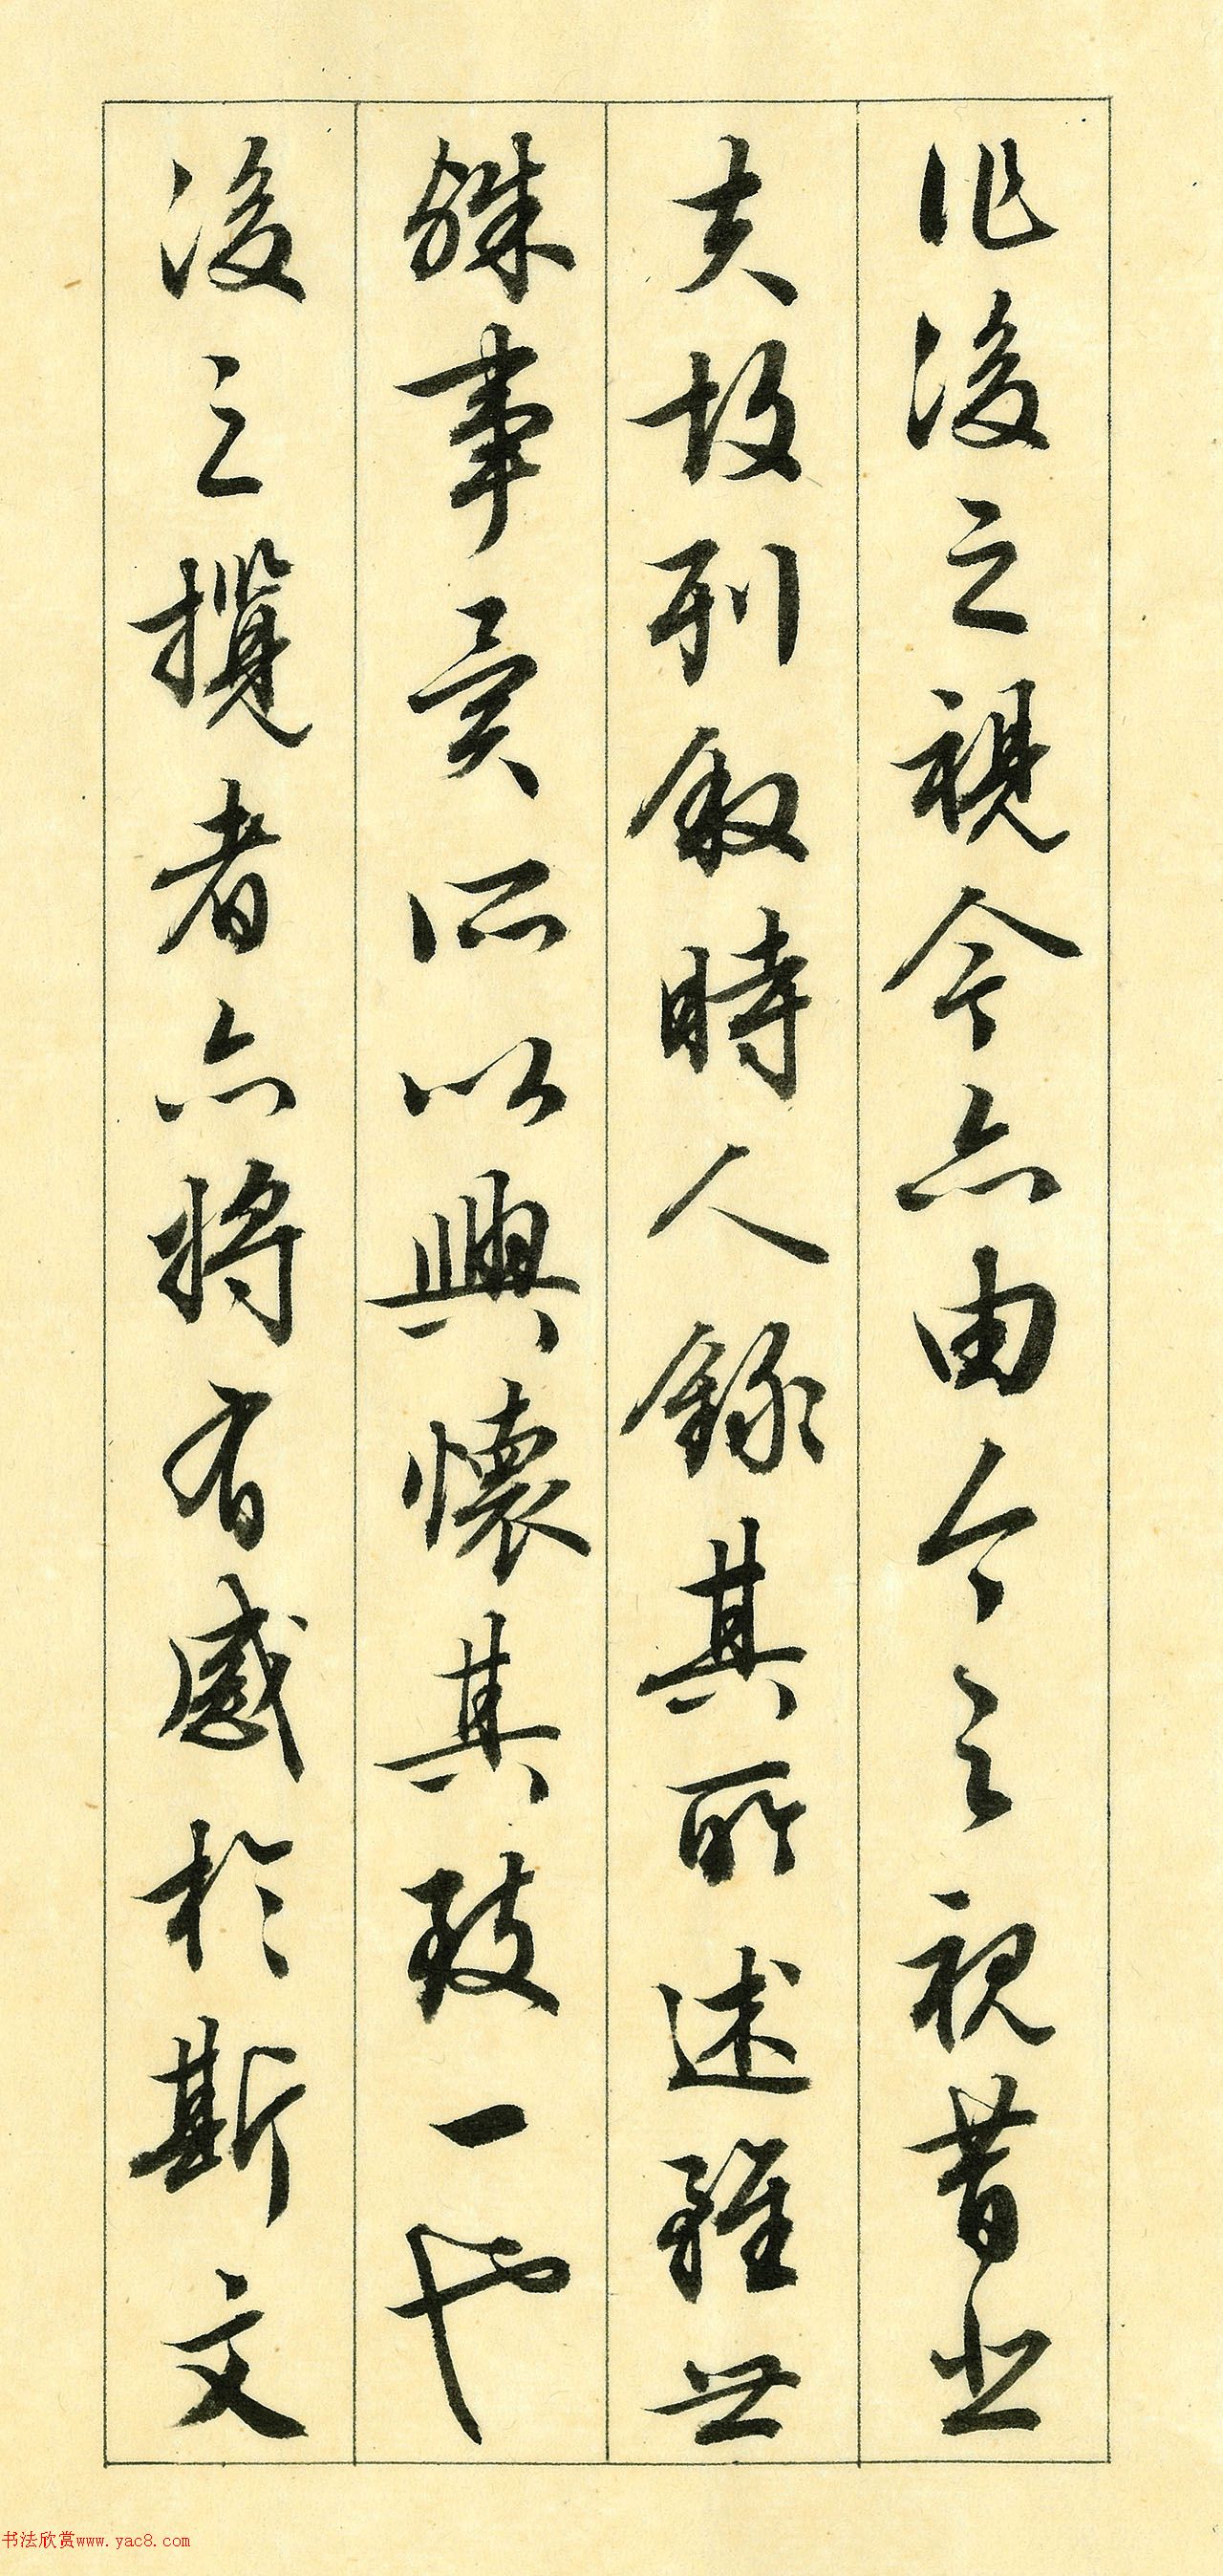 作後之視今亦由今之視昔悲
夫故列敘時人錄其所述雖世
殊事異所以興懷其致一也
後之攬者亦將有感於斯文
书法欣赏www.yac8.com